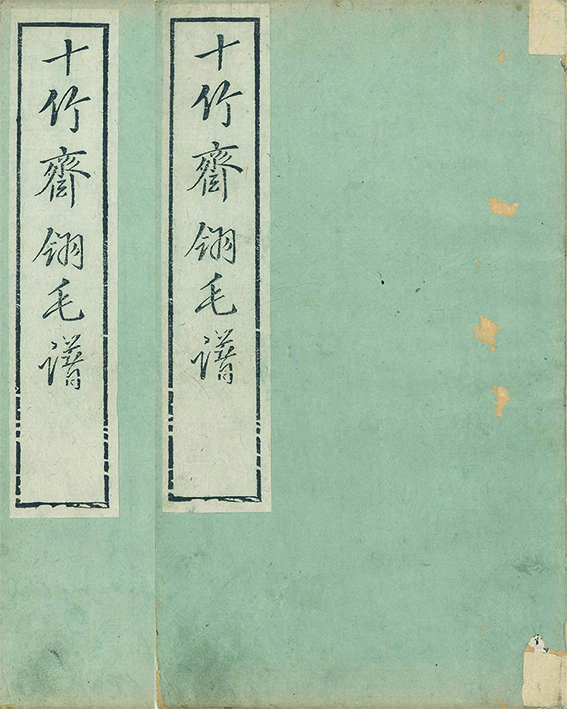 十竹齋翎毛譜
十竹齋翎毛譜